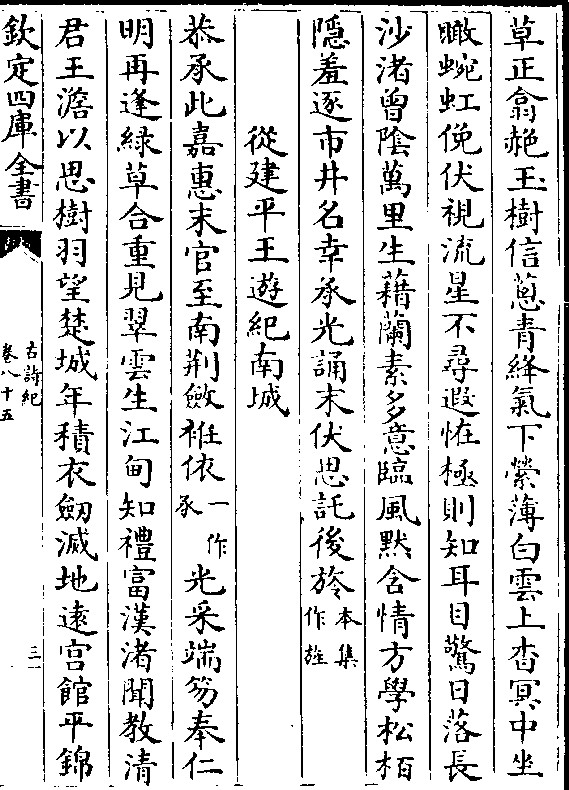 草正翕赩玉樹信葱青絳氣下縈薄白雲上杳冥中坐
瞰蜿虹俛伏視流星不尋遐怪極則知耳目驚日落長
沙渚曾陰萬里生藉蘭素多意臨風黙含情方學松栢
隱羞逐市井名幸承光誦末伏思託後旍本集作旌
從建平王遊紀南城
恭承此嘉惠末官至南荆斂袵依一作承光采端笏奉仁
明再逢緑草合重見翠雲生江甸知禮富漢渚聞教清
君王澹以思樹羽望楚城年積衣劒滅地逺宫館平錦
欽定四庫全書
古詩紀
卷八十五
三